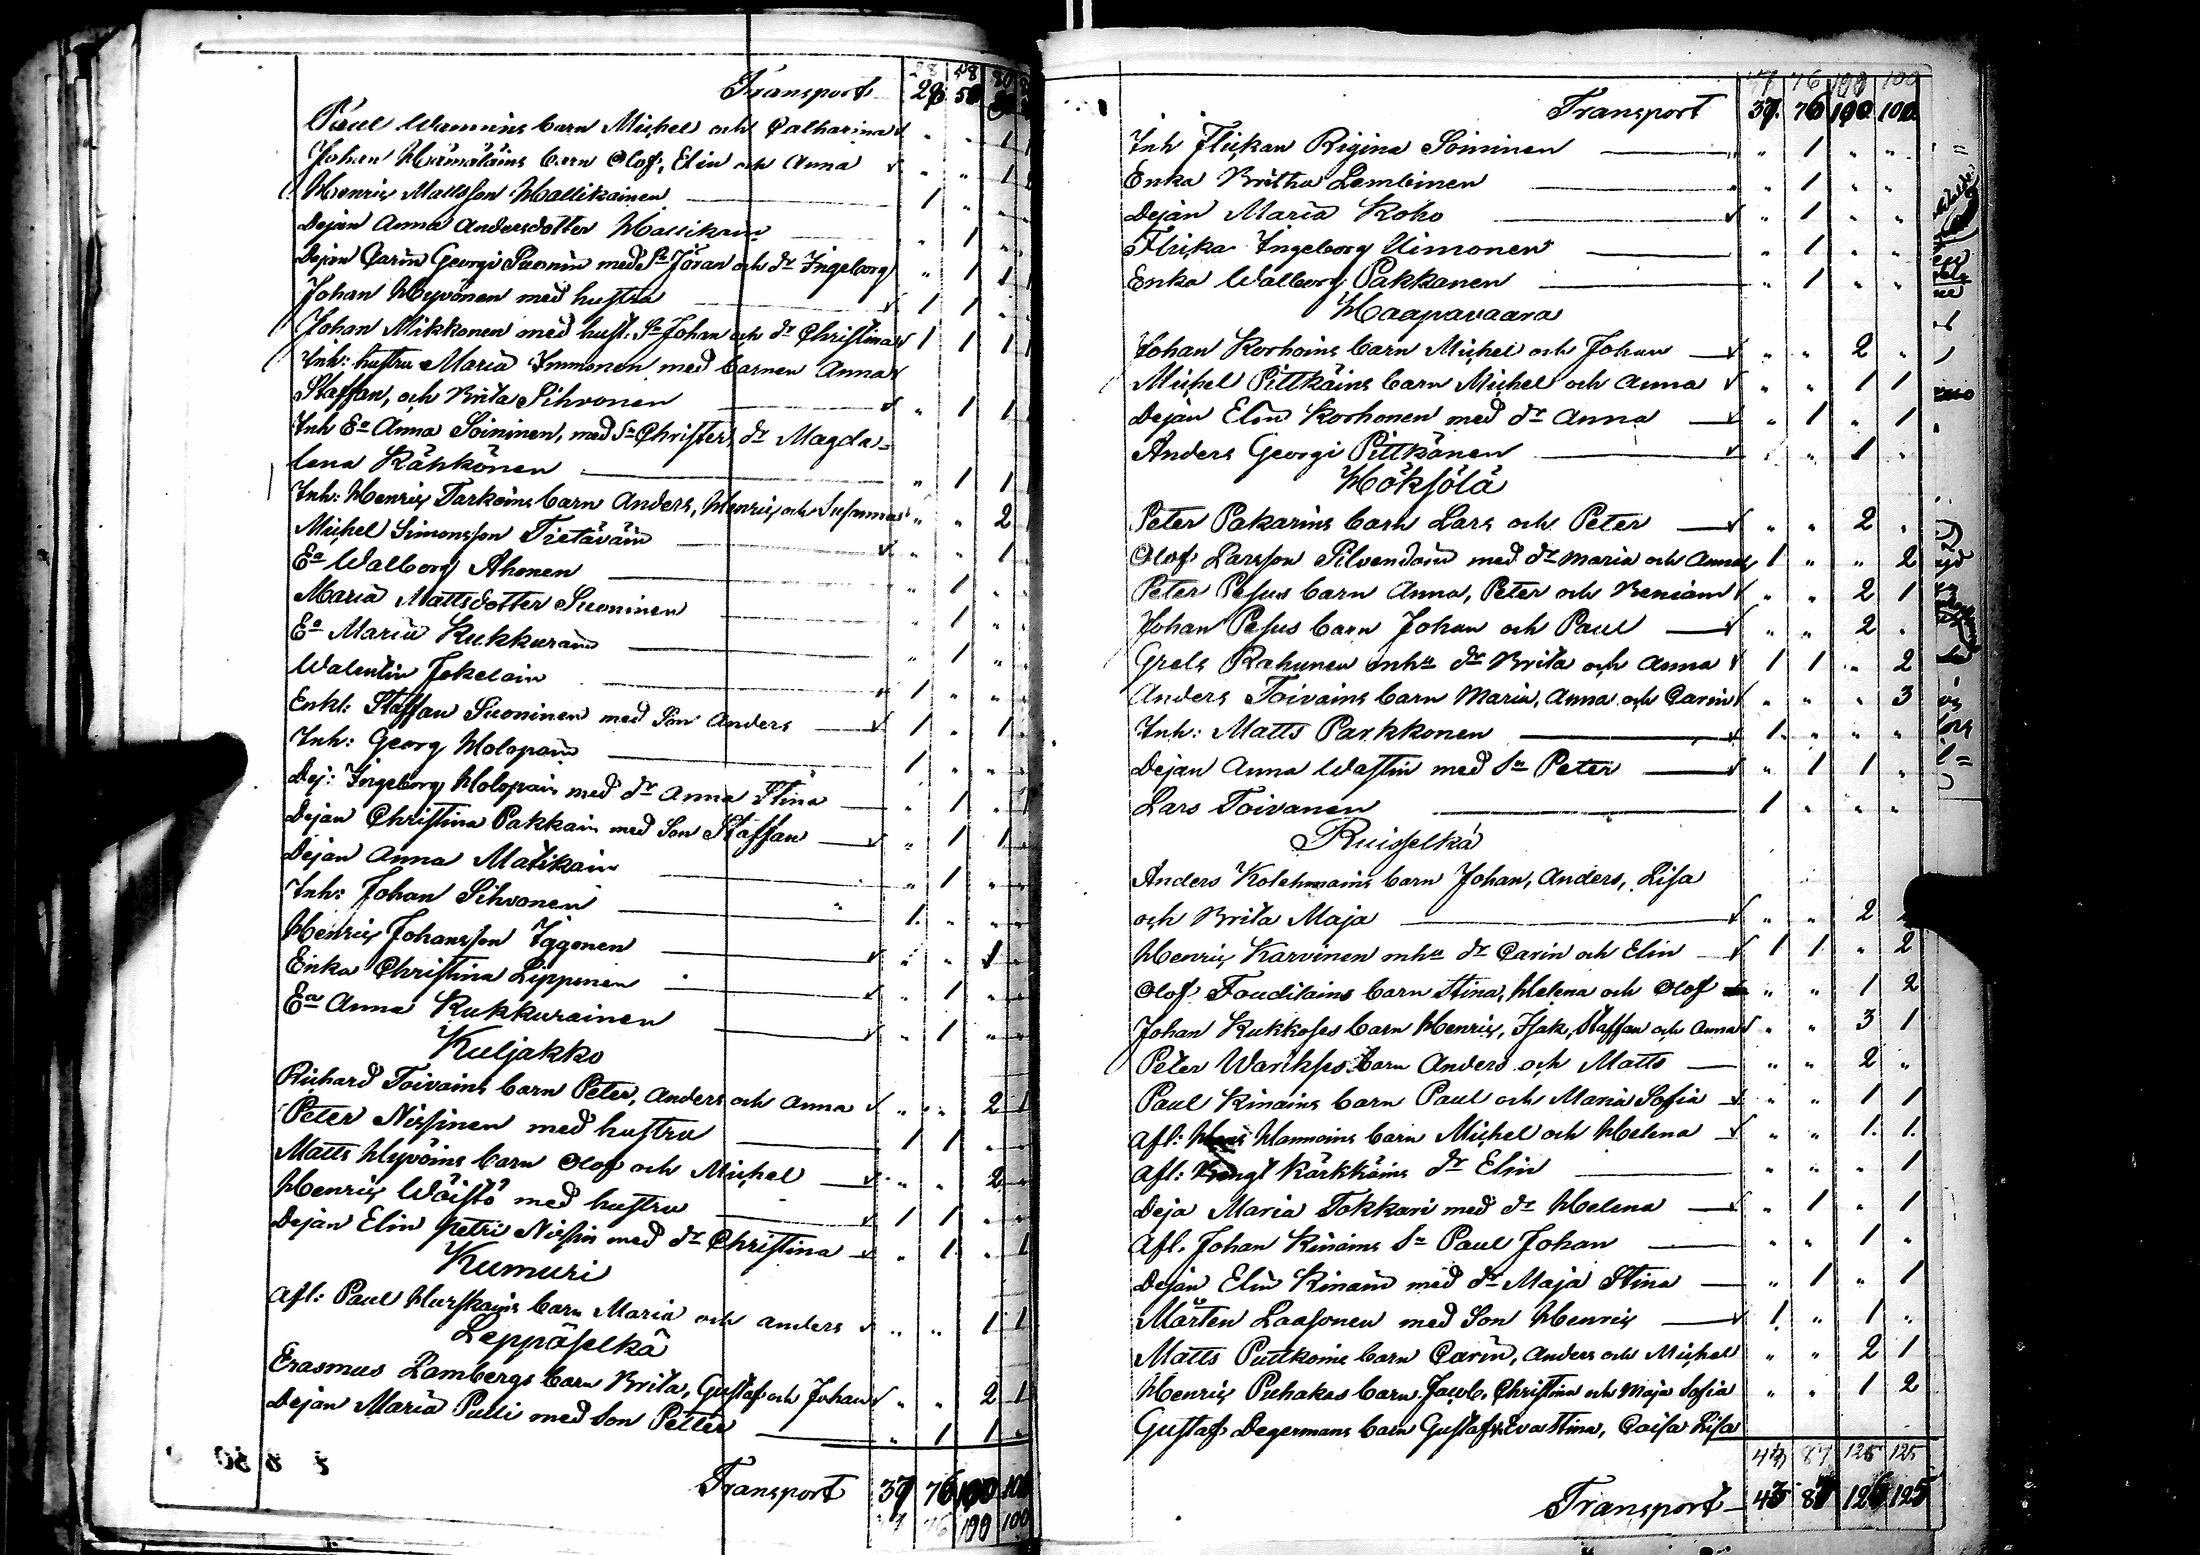 28 58 80
Transport 28 58 80
Paul Wänninens barn Michel och Catharina √ " " 1 1
Johan Hämäläins barn Olof, Elin och Anna √ " " 1
Henric Mattsson Hallikainen 1 " "
Dejan Anna Andersdotter Hallikain " 1 "
Dejan Carin Georgi Suonin med Sn Jöran och dr Ingeborg " 1 1 1
Johan Hyvönen med hustru √ 1 1 "
Johan Mikkonen med hust: Sn Johan och dr Christina √ 1 1 1 1
Inh: hustru Maria Immonen med barnen Anna √
Staffan, och Brita Sihvonen √ " 1 1
Inh Ea Anna Soininen, med Sn Christer, dr Magda=
lena Kähkönen " 1 1
Inh: Henric Tarkains barn Anders, Henric och Susanna " " 2
Michel Simonsson Tietäväin √ " " 1
Ea Walborg Ahonen " 1 "
Maria Mattsdotter Suoninen " 1 "
Ea Maria Kukkurain " 1 "
Walentin Jekelain " 1 " "
Enkl: Staffan Suoninen med Son Anders √ 1 " 1
Inh: Georg Holopain 1 " "
Dej: Ingeborg Holopain med dr Anna Stina " 1 " 1
Dejan Christina Pakkain med Son Staffan √ " 1 1
Dejan Anna Matikain " 1 " "
Inh: Johan Sihvonen 1 " " "
Henric Johansson Iggonen √ " " 1 "
Enka Christina Lipponen √ " 1 " "
Ea Anna Kukkurainen √ " 1 " "
Kuljakko
Richard Toivains barn Peter, Anders och Anna √ " " 2 1
Peter Nissinen med hustru 1 1 " "
Matts Hyvöins barn Olof och Michel √ " " 2 "
Henric Wäistö med hustru √ 1 1 " "
Dejan Elin Petri Nissin med dr Christina √ " 1 " 1
Kumuri
Afl: Paul Hurskains barn Maria och Anders √ " " 1 1
Leppäselkä
Erasmus Lambergs barn Brita, Gustaf och Johan √ " " 2 1
Dejan Maria Pulli med Son Petter " 1 1 "
Transport 37 76 100 100
37 76 100 100
37 76 100 100
Transport 37 76 100 100
Inh Flickan Rigina Soininen " 1 " "
Enka Britha Lembinen " 1 " "
Dejan Maria Koho √ " 1 " "
Flicka Ingeborg Uimonen " 1 " "
Enka Walborg Pakkanen " 1 " "
Haapavaara
Johan Korhoins barn Michel och Johan √ " " 2 "
Michel Pittkäins barn Michel och Anna √ " " 1 1
Dejan Elin Korhonen med dr Anna √ " 1 " 1
Anders Georgi Pittkänen √ " " 1 "
Höksölä
Peter Pakarins barn Lars och Peter √ " " 2 "
Olof Larsson Silvendain med dr Maria och Anna √ 1 " " 2
Peter Pesus barn Anna, Peter och Beniam √ " " 2 1
Johan Pesus barn Johan och Paul √ " " 2 "
Grels Rahunen mhu dr Brita och Anna √ 1 1 " 2
Anders Toivains barn Maria, Anna och Carin √ " " " 3
Inh: Matts Parkkonen √ 1 " " "
Dejan Anna Wastin med Sn Peter √ " 1 1 "
Lars Toivanen 1 " " "
Ruisselkä
Anders Kolehmains barn Johan, Anders, Lisa
och Brita Maja √ " " 2 2
Henric Karvinen mhu dr Carin och Elin √ 1 1 " 2
Olof Touditains barn Stina, Helena och Olof " " 1 2
Johan Kukkoses barn Henric, Isak, Staffan och Anna √ " " 3 1
Peter Warikses barn Anders och Matts " " 2 "
Paul Kinains barn Paul och Maria Sofia √ " " 1 1
Afl: Hannoins barn Michel och Helena √ " " 1 1
Afl: Bengt Kärkkäins dr Elin " " " 1
Deja Maria Tokkari med dr Helena √ " 1 " 1
Afl. Johan Kinains Sn Paul Johan " " 1 "
Dejan Elin Kinain med dr Maja Stina " 1 " 1
Mårten Laasonen med Son Henric √ 1 " 1 "
Matts Puttkoins barn Carin, Anders och Michel " " 2 1
Henric Puhakas barn Jacob, Christina och Maja Sofia " " 1 2
Gustaf Degermans barn Gustaf, Eva Stina, Caisa Lisa
43 87 126 125
Transport 43 87 126 125